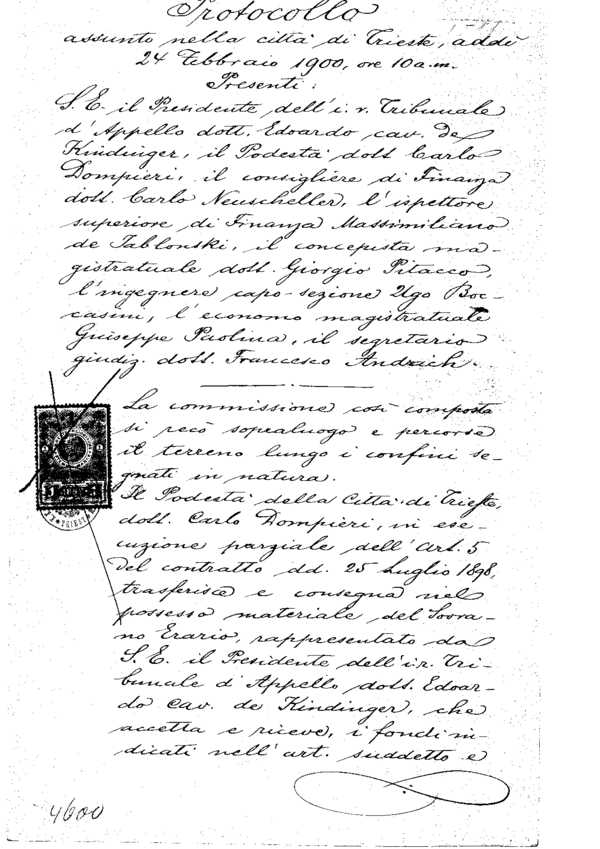 Protocollo
assunto nella città di Trieste, addì
24 Febbraio 1900, ore 10 a.m.
Presenti:
S. E. il Presidente dell' i. r. Tribunale
d' Appello dott. Edoardo cav. de
Kindinger, il Podestà dott Carlo
Dompieri, il consigliere di Finanza
dott. Carlo Neuscheller, l' ispettore
superiore di Finanza Massimiliano
de Jablonski, il concepista ma-
gistratuale dott. Giorgio Pitacco,
l' ingegnere capo-sezione Ugo Boc-
casini, l' economo magistratuale
Guiseppe Paolina, il segretario
giudiz. dott. Francesco Andrich.
La commissione così composta
si recò sopraluogo e percorse
il terreno lungo i confini se-
gnati in natura.
Il Podestà della Città di Trieste,
dott. Carlo Dompieri, in ese-
cuzione parziale dell' art. 5
del contratto dd. 25 Luglio 1898,
trasferisce e consegna nel
possesso materiale del Sovra-
no Erario, rappresentato da
S. E. il Presidente dell' i.r. Tri-
bunale d' Appello dott. Edoar-
do cav. de Kindinger, che
accetta e riceve, i fondi in-
dicati nell' art. suddetto e
TRIEST
4600